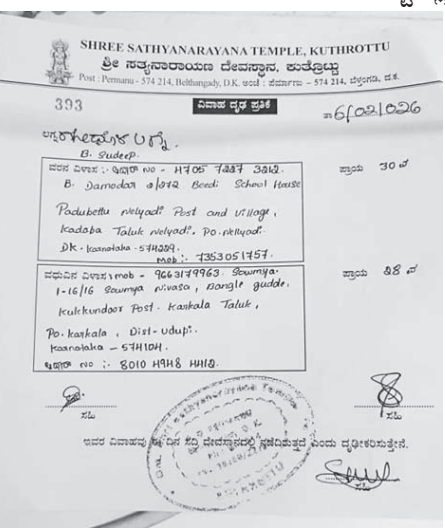 SHREE SATHYANARAYANA TEMPLE, KUTHROTTU
ಶ್ರೀ ಸತ್ಯನಾರಾಯಣ ದೇವಸ್ಥಾನ, ಕುತ್ರೊಟ್ಟು
Post : Permanu - 574 214, Belthangady, D.K. ಅಂಚೆ : ಪೆರ್ಮಾಣು - 574 214, ಬೆಳ್ತಂಗಡಿ, ದ.ಕ.
393 ವಿವಾಹ ದೃಢ ಪ್ರತಿಕೆ 6/02/026
B. Sudeep.
ವರನ ವಿಳಾಸ :- ಆಧಾರ್ NO - 4705 7227 3242. ಪ್ರಾಯ 30 ವ
B. Damodar Beedi School House
Padubettu Nelyadi Post and Village,
Kadaba Taluk Nelyadi. Po. Nelyadi.
DK - Karnataka - 574229.
Mob :- 7353051757.
ವಧುವಿನ ವಿಳಾಸ : mob - 9663179963. Sowmya. ಪ್ರಾಯ 28 ವ
1-16/16 Sowmya Nivasa, Bangle gudde,
Kukkundoor Post. Karkala Taluk,
Po. Karkala, Dist - Udupi.
Karnataka - 574104.
ಆಧಾರ್ NO :- 8010 4948 4412.
ಸಹಿ ಸಹಿ
ಇವರ ವಿವಾಹವು ಈ ದಿನ ಸದ್ರಿ ದೇವಸ್ಥಾನದಲ್ಲಿ ನಡೆದಿರುತ್ತದೆ ಎಂದು ದೃಢೀಕರಿಸುತ್ತೇನೆ.
ಸಹಿ